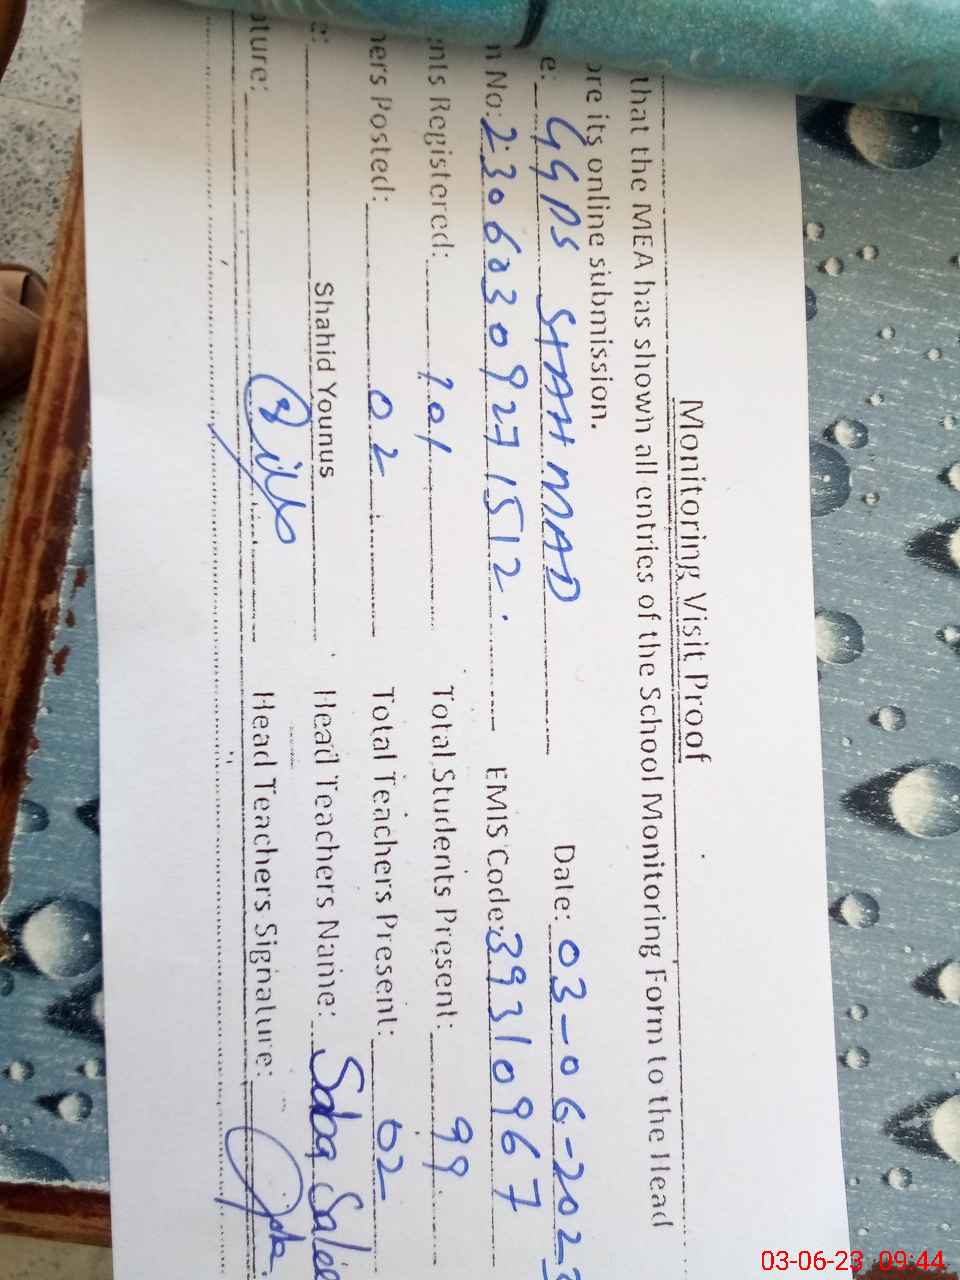 Monitoring Visit Proof
that the MEA has shown all entries of the School Monitoring Form to the Head
ore its online submission.
e: GGPS STAH MAD Date: 03-06-202
n No: 23060309271512. EMIS Code: 39310967
nts Registered: 101 Total Students Present: 99
ers Posted: 02 Total Teachers Present: 02
e: Shahid Younus Head Teachers Name: Saba Salee
ture: Head Teachers Signature:
03-06-23 09:44